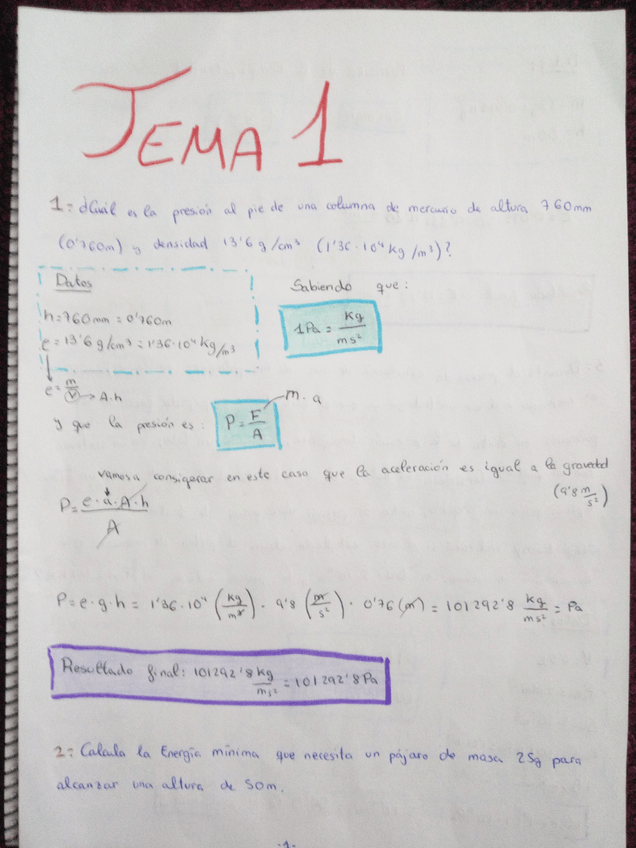 TEMA 1
1: ¿Cuál es la presión al pie de una columna de mercurio de altura 760mm
(0'760m) y densidad 13'6 g/cm³ (1'36·10⁴ kg/m³)?
Datos
h=760mm=0'760m
ρ=13'6 g/cm³=1'36·10⁴ kg/m³
ρ=m/V → A·h
Sabiendo que:
1Pa = kg/ms²
y que la presión es: P=F/A m·a
vamos a considerar en este caso que la aceleración es igual a la gravedad
(9'8 m/s²)
P=ρ·a·A·h/A
P=ρ·g·h = 1'36·10⁴ (kg/m³) · 9'8 (m/s²) · 0'76 (m) = 101292'8 kg/ms² = Pa
Resultado final: 101292'8 kg/ms² = 101292'8 Pa
2: Calcula la Energía mínima que necesita un pájaro de masa 25g para
alcanzar una altura de 50m.
·1·